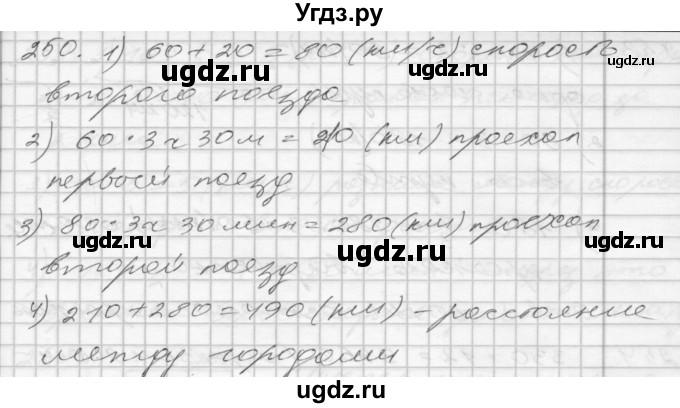 Угдз.ру
250. 1) 60 + 20 = 80 (км/ч) скорость
ugdz.ru ugdz.ru
второго поезда
ugdz.ru
2) 60 · 3ч 30м = 210 (км) проехал
первый поезд
ugdz.ru
3) 80 · 3ч 30 мин = 280 (км) проехал
ugdz.ru ugdz.ru
второй поезд
ugdz.ru
4) 210 + 280 = 490 (км) – расстояние
между городами
ugdz.ru
ugdz.ru